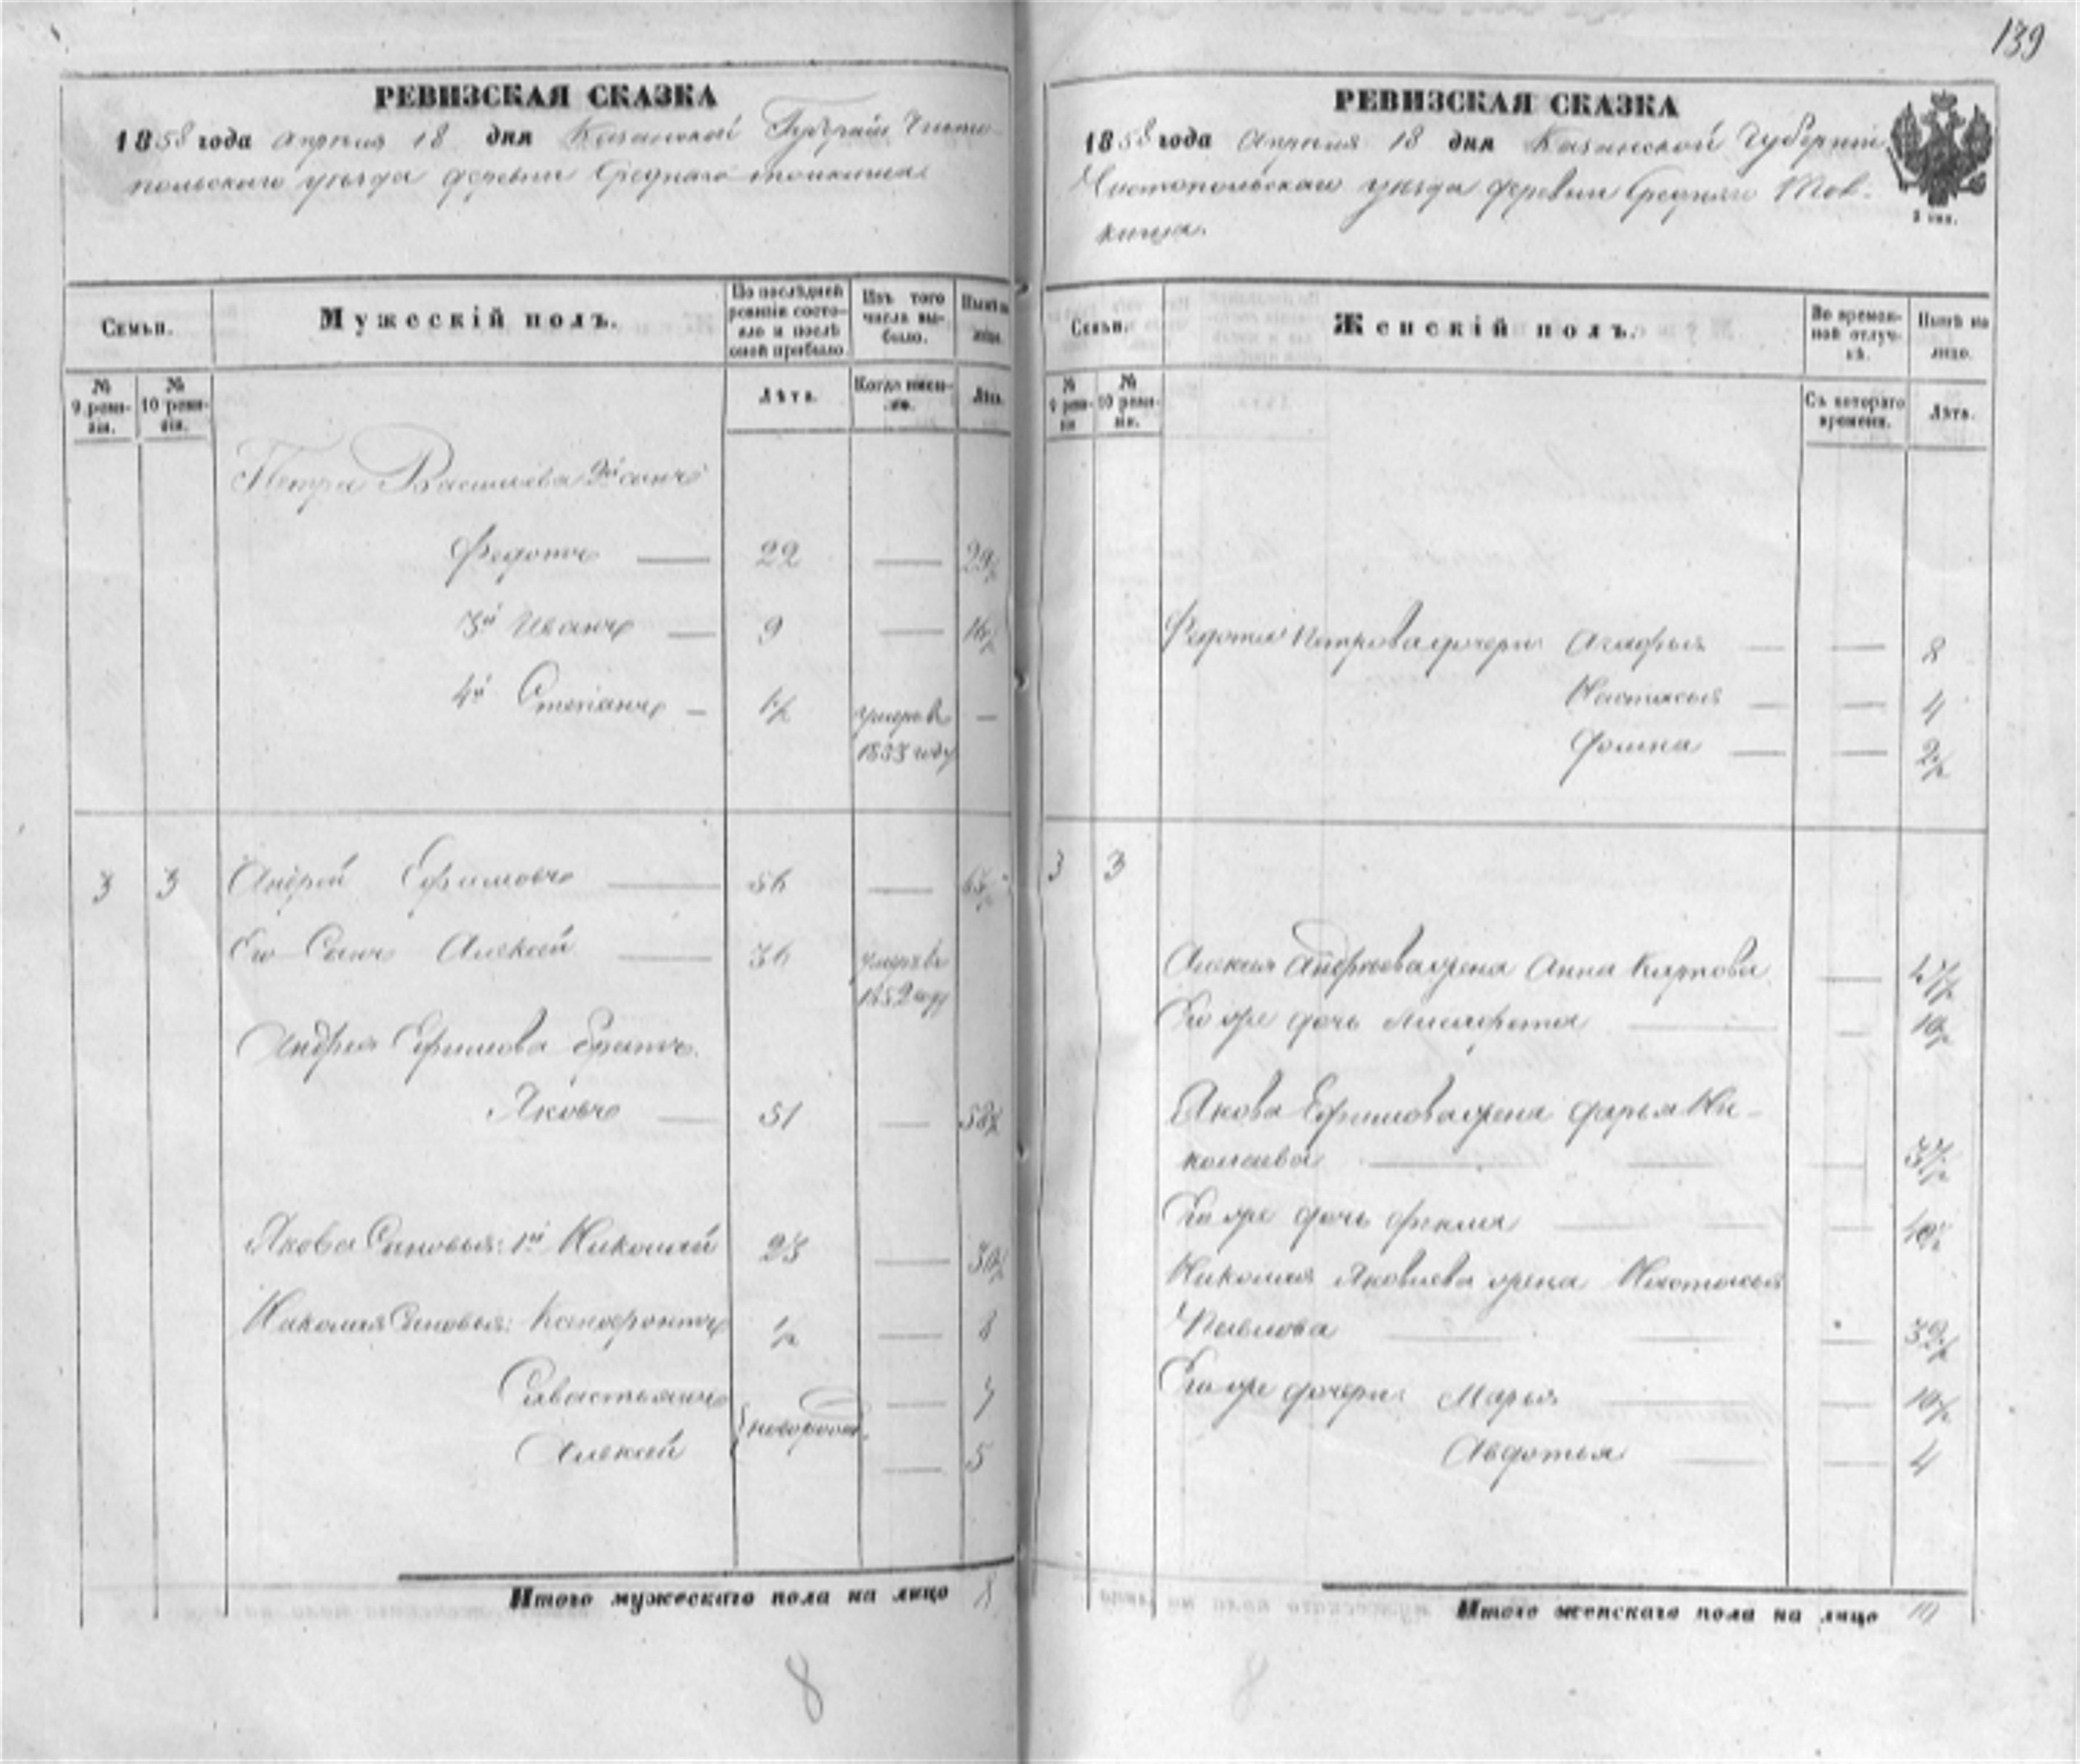 139
РЕВИЗСКАЯ СКАЗКА
1858 года Апреля 18 дня Казанской Губернии Чисто-
польскаго уезда деревни Средняго Толкиша
Семьи.
Мужескій полъ.
По послѣдней ревизіи состояло и послѣ оной прибыло
Изъ того числа выбыло.
Нынѣ на лицо.
№ 9 ревизіи.
№ 10 ревизіи.
Лѣта.
Когда именно.
Лѣта.
Петра Васильева 2й сынъ
Федотъ — 22 — 29½
3й Иванъ — 9 — 16½
4й Степанъ — 1½ умеръ въ —
1853 году
3 3 Андрей Ефимовъ — 56 —
Его Сынъ Алексей — 36 умеръ въ
1852 году
Андрея Ефимова братъ
Яковъ — 51 — 58½
Якова Сыновья: 1й Николай 23 — 30½
Николая Сыновья: ½ — 8
Савастьянъ — 7
новорожд.
Алексей — 5
Итого мужескаго пола на лицо 8
8
РЕВИЗСКАЯ СКАЗКА
1858 года Апреля 18 дня Казанской Губерніи
Чистопольскаго уезда деревни Средняго Тол-
киша.
2 сер.
Семьи.
Женскій полъ.
Во временной отлучкѣ.
Нынѣ на лицо.
№ 9 ревизіи
№ 10 ревизіи.
Съ котораго времени.
Лѣта.
Федота Петрова дочери Агафья — — 8
Настасья — — 4
— — 2½
3 3
Алексея Андреева жена Анна Карпова — 47½
Его же дочь — — 19½
Якова Ефимова жена Дарья Ни-
колаева — — 57½
Его же дочь Фекла — — 19½
Николая Яковлева жена Настасья
Павлова — — 32½
Его же дочери: Марья — — 10½
Авдотья — — 4
Итого женскаго пола на лицо 10